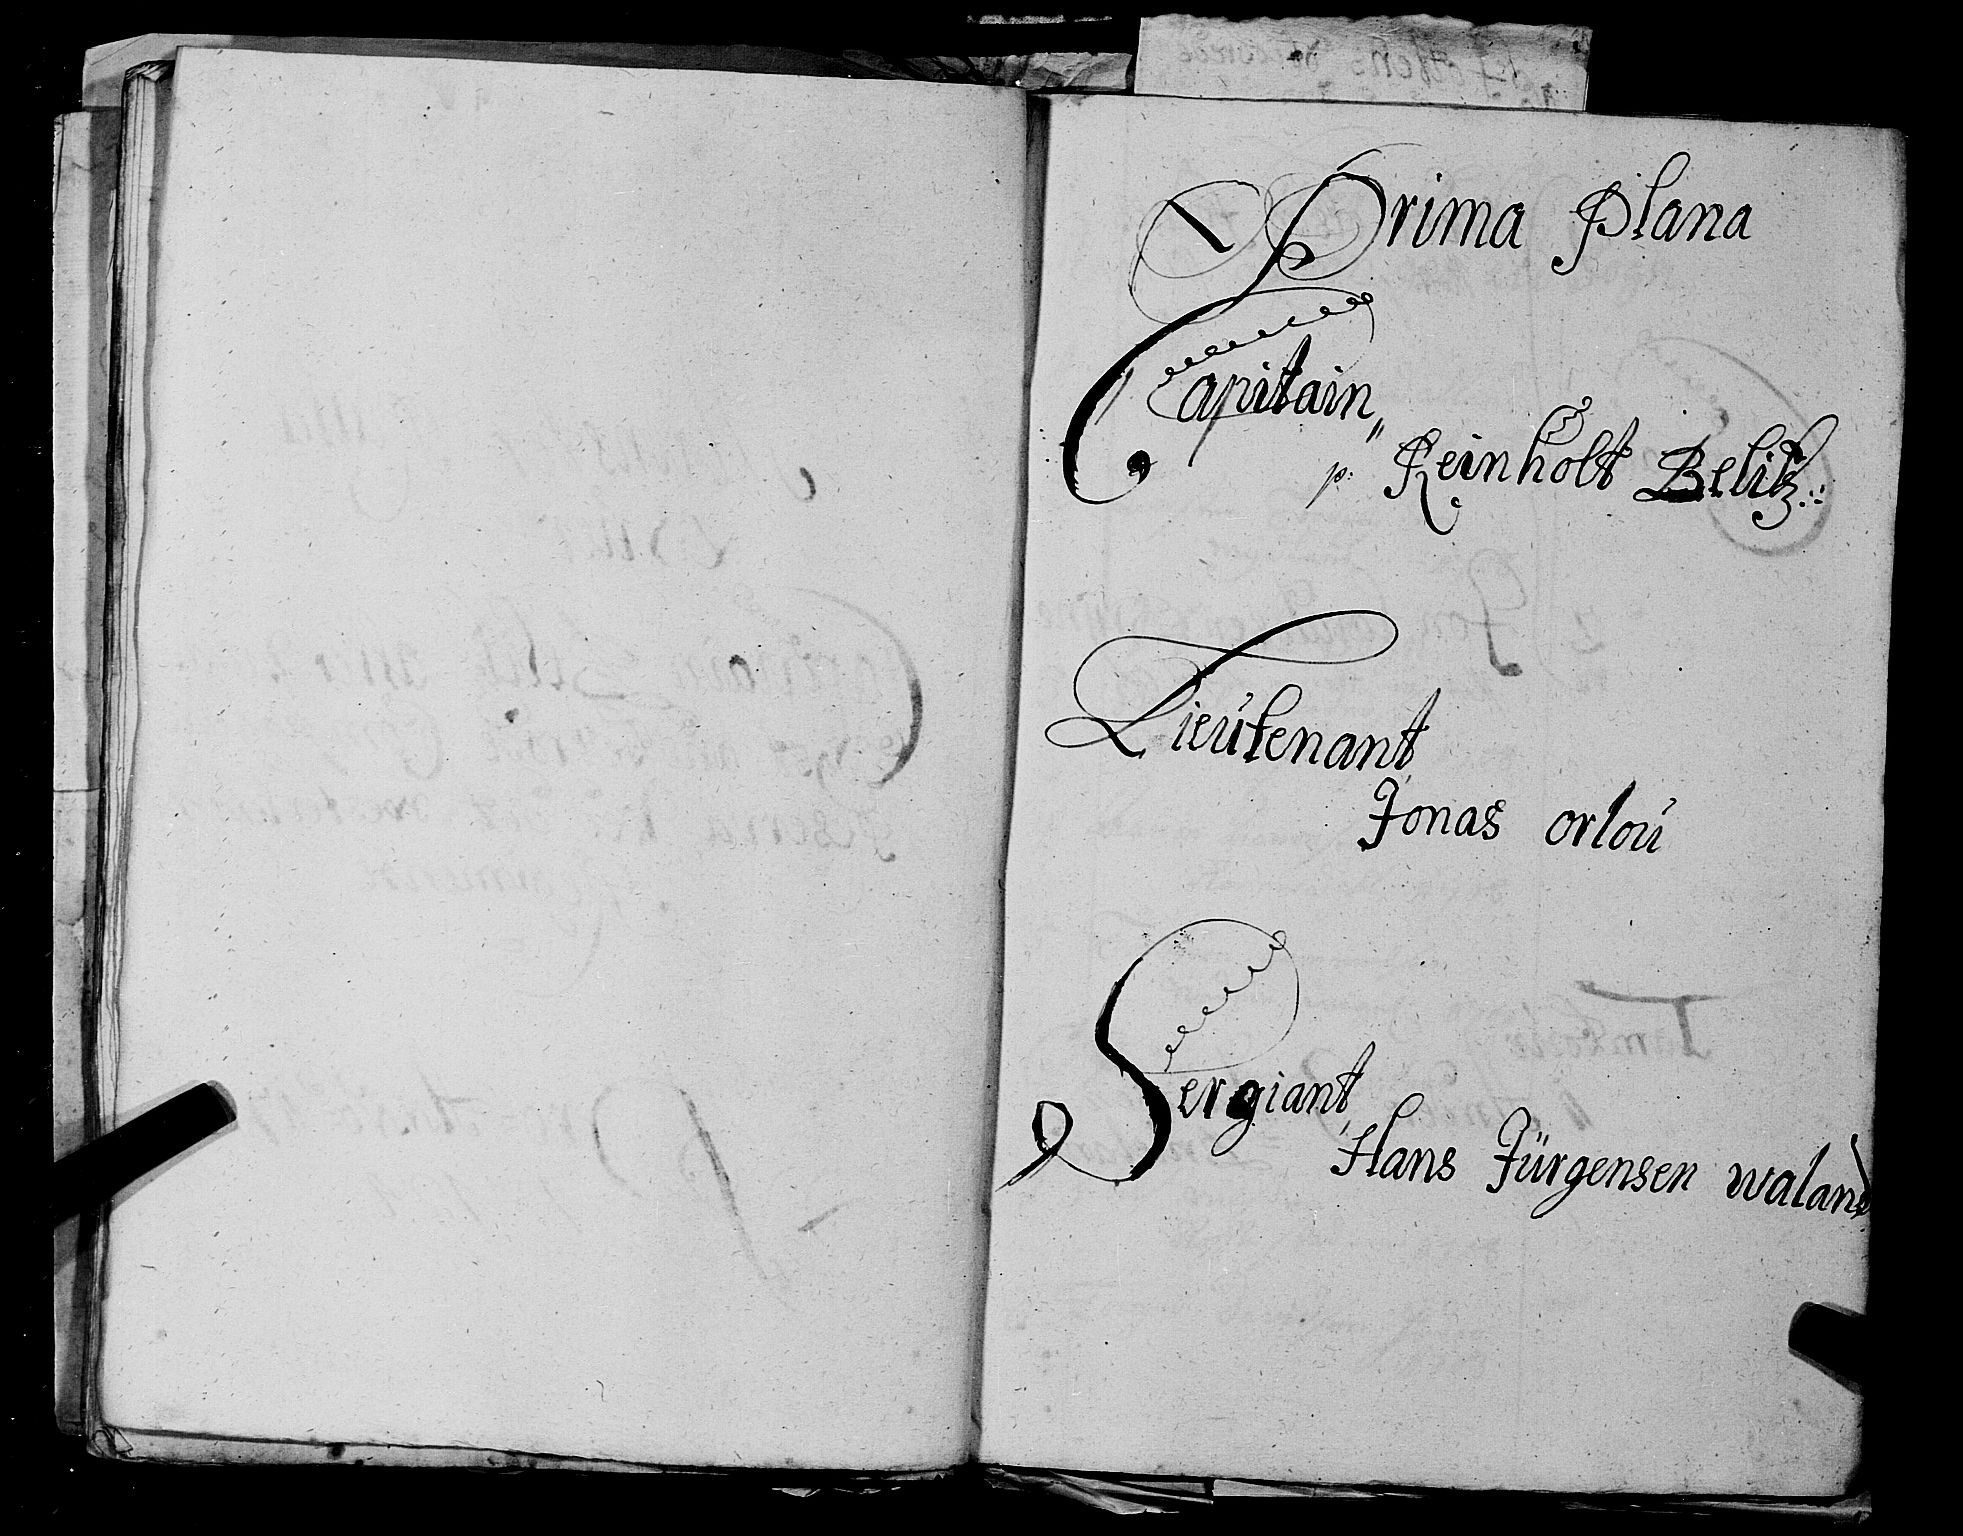 Prima Plana
Capitain,,
p: Reinholt Belitz.:
Lieütenant
Jonas orloü
Sergiant
Hans Jürgensen waland